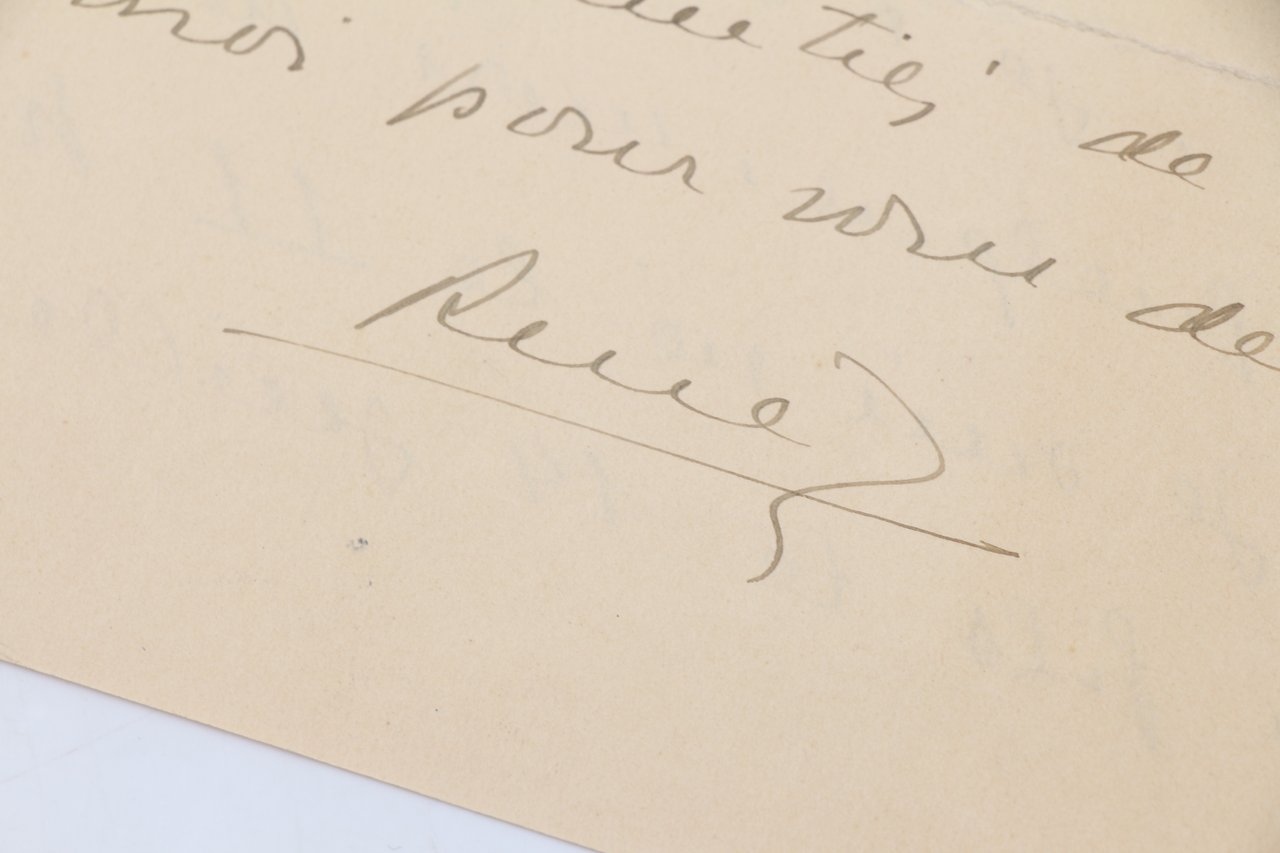 amitiés de
moi pour vous de
René